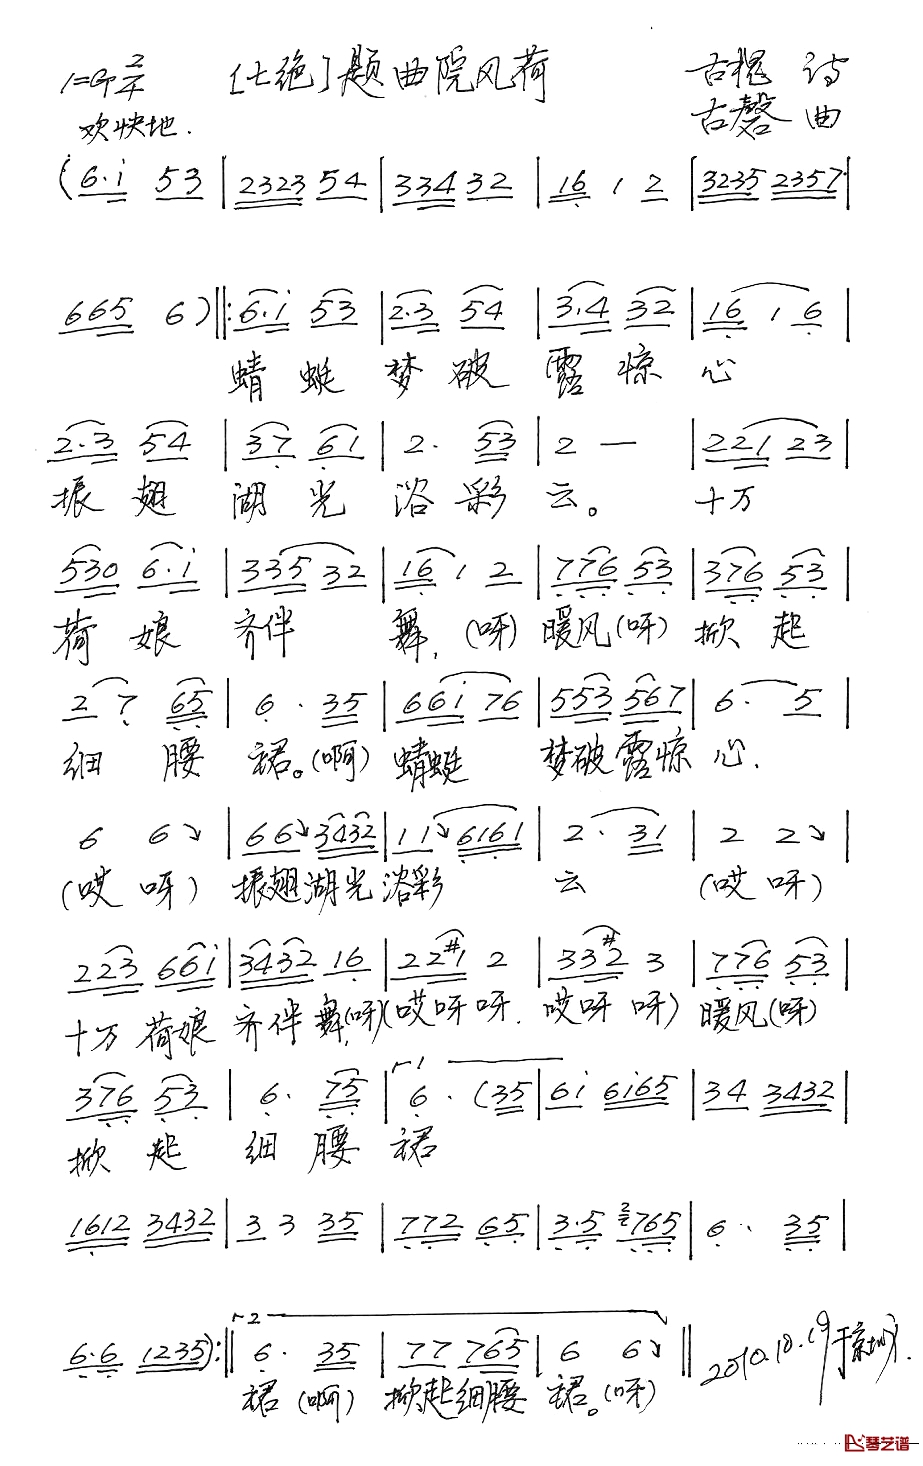 1=G 2/4 [七绝]题曲院风荷 古槐 诗
欢快地. 古磬 曲
(6·i 53 | 2323 54 | 334 32 | 16 1 2 | 3235 2357 |
665 6) ‖: 6·i 53 | 2·3 54 | 3·4 32 | 16 1 6 |
蜻蜓 梦破 露惊 心
2·3 54 | 37 61 | 2· 53 | 2 — | 221 23 |
振翅 湖光 浴彩 云。 十万
530 6·i | 335 32 | 16 1 2 | 776 53 | 376 53 |
荷娘 齐伴 舞,(呀) 暖风(呀) 掀起
2 7 65 | 6· 35 | 66i 76 | 553 567 | 6· 5 |
细腰 裙。(啊) 蜻蜓 梦破露惊 心.
6 6↘ | 66↘ 3432 | 11↘ 6161 | 2· 31 | 2 2↘ |
(哎呀) 振翅湖光 浴彩 云 (哎呀)
223 66i | 3432 16 | 22#1 2 | 33#2 3 | 776 53 |
十万荷娘 齐伴舞,(呀)(哎呀呀. 哎呀呀) 暖风(呀)
376 53 | 6· 75 | 1 6· (35 | 6i 6i65 | 34 3432 |
掀起 细腰 裙
1612 3432 | 33 35 | 772 65 | 3·5 2765 | 6· 35 |
6·6 1235) :‖ 2 6· 35 | 77 765 | 6 6↘ ‖ 2010.10.19于京城.
裙(啊) 掀起细腰 裙。(呀)
琴艺谱